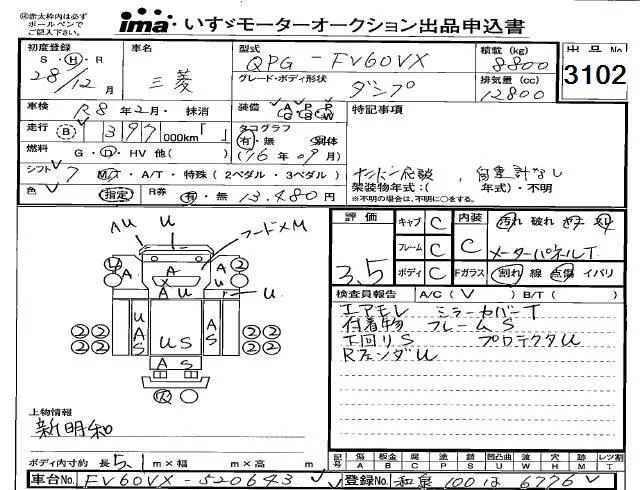 ㊟赤太枠内は必ず
ボールペンで
ご記入下さい。
ima いすゞモーターオークション出品申込書
初度登録 S・H・R 28/12月
車名 三菱
型式 QPG-FV60VX
積載(kg) 8800
グレード・ボディ形状 ダンプ
排気量(cc) 12800
出品No 3102
車検 R8年2月・抹消
装備 A/G P/S P/W
特記事項
走行 B 397 000km「 」
タコグラフ 有・無 別体
('16年09月)
燃料 G・D・HV 他( )
シフト 7 MT・A/T・特殊(2ペダル・3ペダル)
自重計なし
架装物年式:( 年式)・不明
※不明の場合は、不明に○をする。
色 指定
R券 有・無 13,480円
評価 3.5
キャブ C 内装 C 汚れ 破れ
フレーム C メーターパネルT
ボディ C Fガラス 割れ 線 点傷 イバリ
AU U フードメM
④ A A ②
A U U
②② U A S U S A S ②②
②② ②②
A S
検査員報告 A/C(V) B/T( )
エアモレ ミラーカバーT
付着物 フレームS
下回りS プロテクタU
RフェンダU
上物情報
新明和
ボディ内寸約 長5.1m×幅 m×高 m
記号 傷 板金 腐 塗 錆 凹凸曲 波 穴 跡 レンズ割
A B C P S U W H M T
車台No. FV60VX-520643
登録No. 和泉 100 は 6776